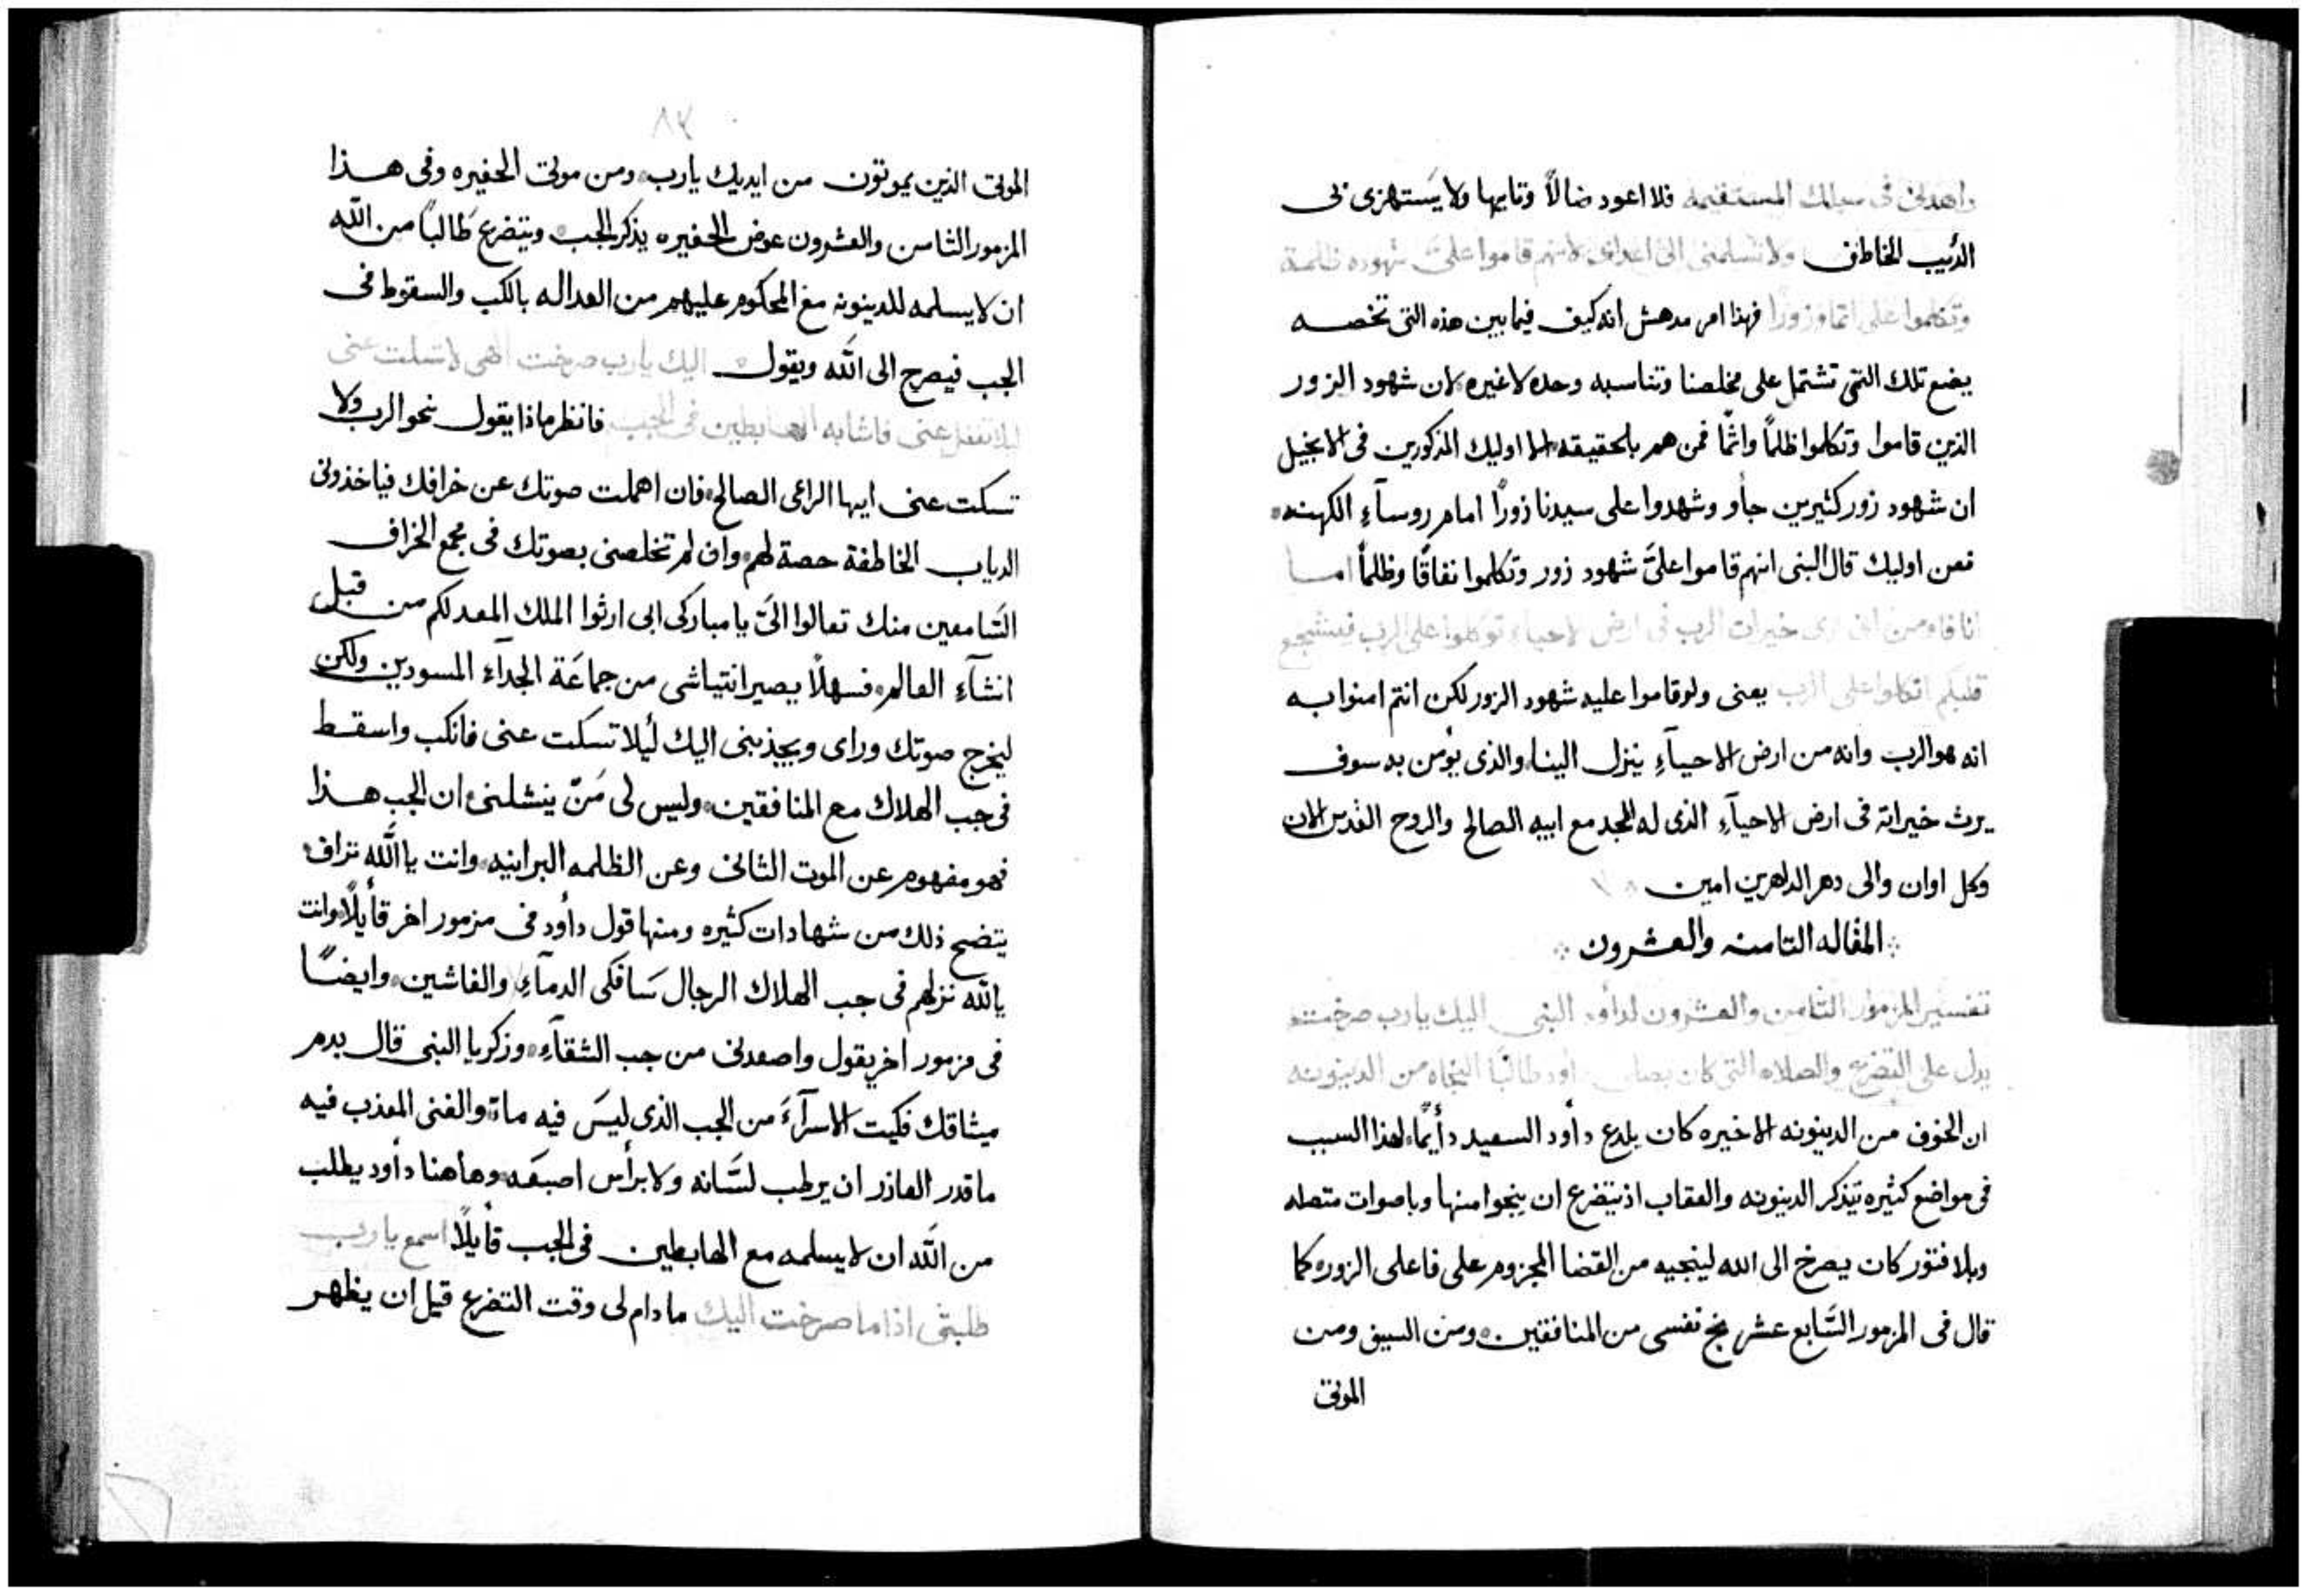 واهدنى فى سبلك المستقيمه فلا اعود ضالاً وتايها ولا يَستهزى بى
الدئيب الخاطف ولا تسلمنى الى اعداى لانهم قاموا علىَّ شهوده ظلمة
وتكلموا على اثما وزورًا فهذا امر مدهش انه كيف فيما بين هذه التى تخصه
يضع تلك التى تشتمل على مخلصنا وتناسبه وحده لا غيره لان شهود الزور
الذين قاموا وتكلموا ظلماً واثمًا فمن هم بالحقيقه الا اوليك المذكورين فى الانجيل
ان شهود زور كثيرين جأو وشهدوا على سيدنا زورًا امام روسآءِ الكهنه
فعن اوليك قال النبى انهم قاموا علىَّ شهود زور وتكلموا نفاقًا وظلماً اما
انا فاومن انى ارى خيرات الرب فى ارض الاحياء توكلوا على الرب فيتشجع
قلبكم اتكلوا على الرب يعنى ولو قاموا عليه شهود الزور لكن انتم امنوا به
انه هو الرب وانه من ارض الاحيآءِ ينزل الينا والذى يؤمن به سوف
يرث خيراته فى ارض الاحيآءِ الذى له المجد مع ابيه الصالح والروح القدس الان
وكل اوان والى دهر الداهرين امين
المقاله الثامنه والعشرون
تفسير المزمور الثامن والعشرون لدأود النبى اليك يارب صرخت
يدل على التضرع والصلاه التى كان يصلى داود طالبًا النجاه من الدينونه
ان الخوف من الدينونه الاخيره كان يلدع دأود السعيد دأيمًا لهذا السبب
فى مواضع كثيره يتذكر الدينونه والعقاب اذ يتضرع ان ينجوا منها وباصوات متصله
وبلا فتور كان يصرخ الى الله لينجيه من القضا المجزوم على فاعلى الزوره كما
قال فى المزمور السَّابع عشر نج نفسى من المنافقين ومن السيف ومن
الموتى
٨٣
الموتى الذين يموتون من ايديك يارب ومن موتى الحفيره وفى هذا
المزمور الثامن والعشرون عوض الحفيره يذكر الجب ويتضرع طَالباً من الله
ان لا يسلمه للدينونه مع المحكوم عليهم من العداله بالكب والسقوط فى
الجب فيصرخ الى الله ويقول اليك يارب صرخت الهى لا تسكت عنى
ليلا تغفل عنى فاشابه الهابطين فى الجب فانظر ماذا يقول نحو الرب ولا
تسكت عنى ايها الراعى الصالح فان اهملت صوتك عن خرافك فياخذونى
الدياب الخاطفة حصة لهم وان لم تخلصنى بصوتك فى مجمع الخراف
السَّامعين منك تعالوا الىَّ يا مباركى ابى ارثوا الملك المعد لكم من قبل
انشآءِ العالم فسهلاً يصير انتياشى من جماعَة الجدآءِ المسودين ولكن
ليخرج صوتك وراى ويجذبنى اليك لَيلا تسكت عنى فانكب واسقط
فى جب الهلاك مع المنافقين وليس لى مَنّ ينشلنى ان الجب هذا
فهو مفهوم عن الموت الثانى وعن الظلمه البرانيه وانت يا الله تراف
يتضح ذلك من شهادات كثيره ومنها قول دأود فى مزمور اخر قأيلاً وانت
يالله نزلهم فى جب الهلاك الرجال سَافكى الدمآءِ والغاشين وايضًا
فى مزمور اخر يقول واصعدنى من جب الشقآءِ وزكريا النبى قال بدم
ميثاقك فكيت الاسرآءَ من الجب الذى ليسَ فيه مآء والغنى المعذب فيه
ما قدر العاذر ان يرطب لسَّانه ولا براس اصبعَه وهاهنا دأود يطلب
من الله ان لا يسلمه مع الهابطين فى الجب قأيلاً اسمع يارب
طلبتى اذا ما صرخت اليك ما دام لى وقت التضرع قبل ان يظهر